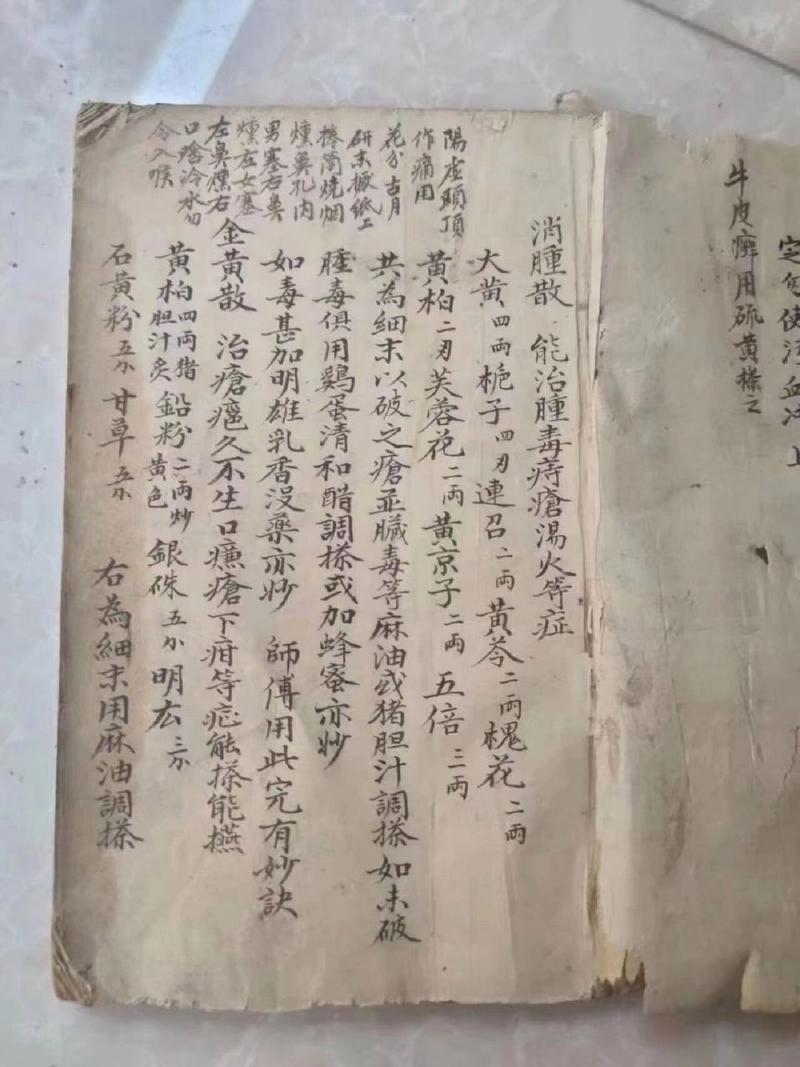 牛皮癬用硫黄搽之
陽虛頭頂
作痛用
花分 古月
研末撒紙上
捲筒燒烟
燻鼻孔内
男塞右鼻
燻左女塞
左鼻燻右
口唅冷水勿
令入喉
消腫散 能治腫毒痔瘡湯火等症
大黄四兩 梔子四刃 連召二兩 黄芩二兩 槐花二兩
黄柏二刃 芙蓉花二兩 黄京子二兩 五倍三兩
共為細末以破之瘡並臟毒等麻油或猪胆汁調搽如未破
腫毒俱用鷄蛋清和醋調搽或加蜂蜜亦妙
如毒甚加明雄乳香没藥亦妙 師傅用此完有妙訣
金黄散 治瘡疤久不生口臁瘡下疳等症能搽能
黄柏四兩猪胆汁炙 鉛粉二兩炒黄色 銀硃五小 明広三小
石黄粉五小 甘草五小 右為細末用麻油調搽